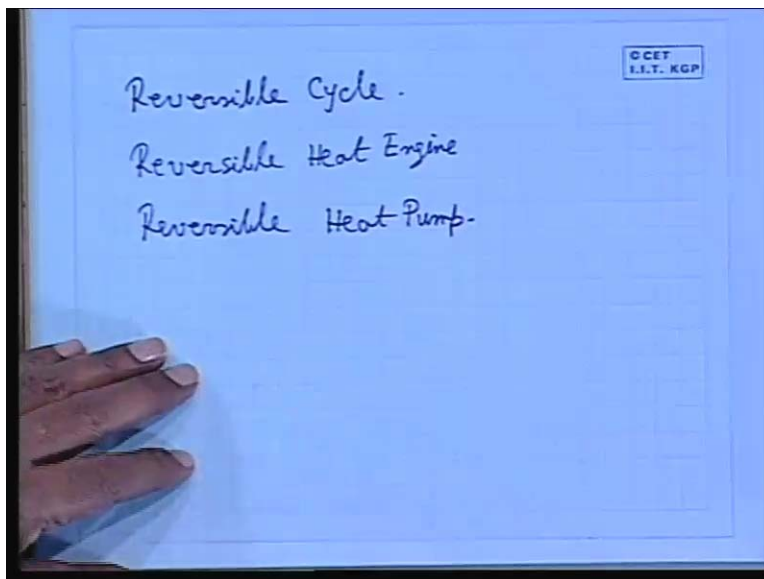 © CET
I.I.T. KGP
Reversible Cycle.
Reversible Heat Engine
Reversible Heat Pump.